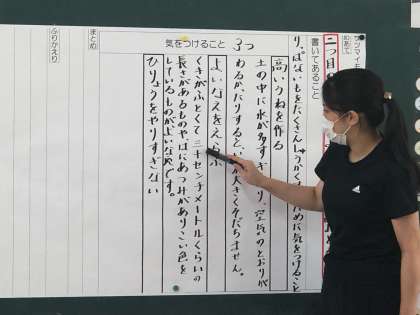 サツマイモ
めあて
二つ目
書いてあること
りっぱないもをたくさんしゅうかくするために気をつけること
気をつけること 3つ
高いうねを作る
土の中に水が多すぎ り、空気のとおりが
わるかったりすると、いもが大きくそだちません。
よいなえをえらぶ
くきがふとくて三十センチメートルくらいの
長さがあるものや、はにあつみがありこい色を
しているものがよいなえです。
ひりょうをやりすぎない
まとめ
ふりかえり